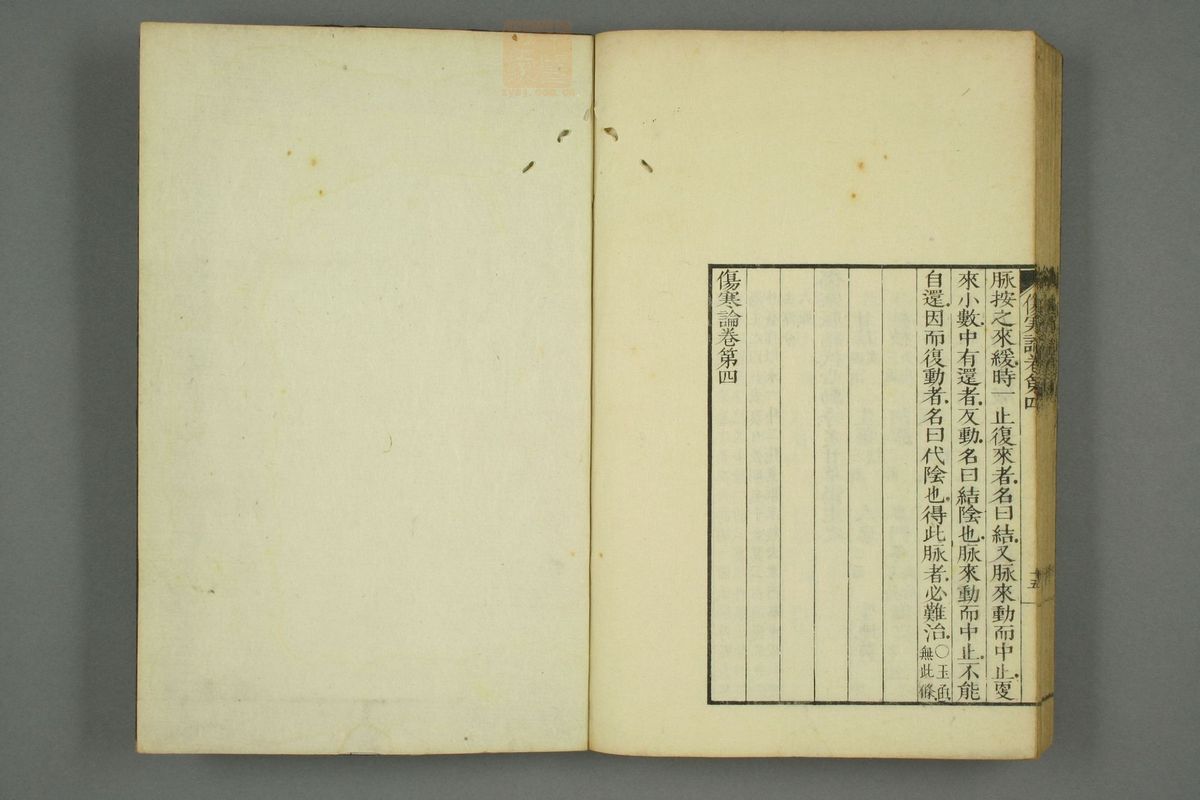 傷寒論卷第四
十五
脉按之來緩時一止復來者名曰結又脉來動而中止更
來小數中有還者反動名曰結陰也脉來動而中止不能
自還因而復動者名曰代陰也得此脉者必難治○玉函
無此條
傷寒論卷第四